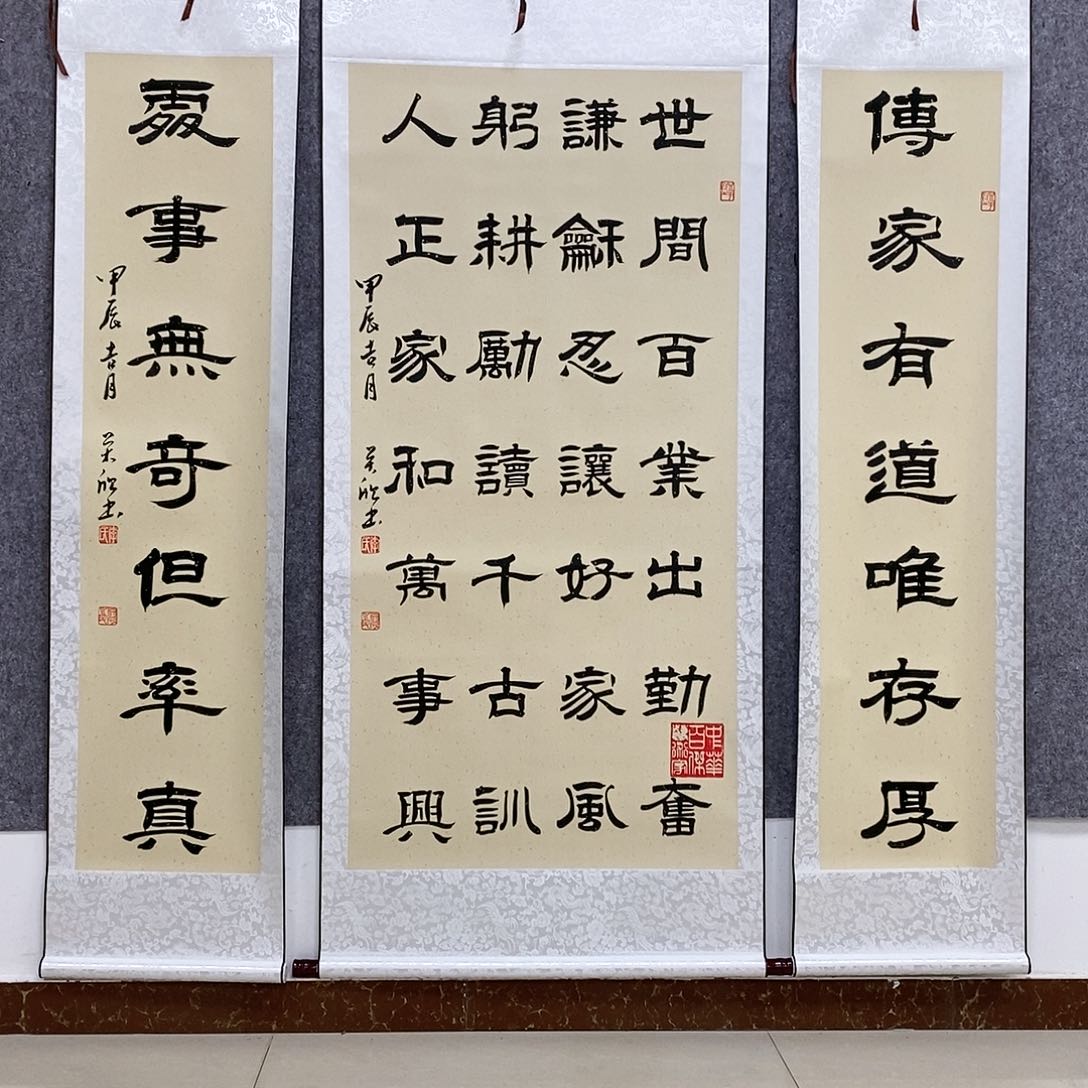 傳家有道唯存厚
世間百業出勤奮
謙龢忍讓好家風
躬耕勵讀千古訓
人正家和萬事興
甲辰吉月
欣书
中華百傑
處事無奇但率真
甲辰吉月
欣书